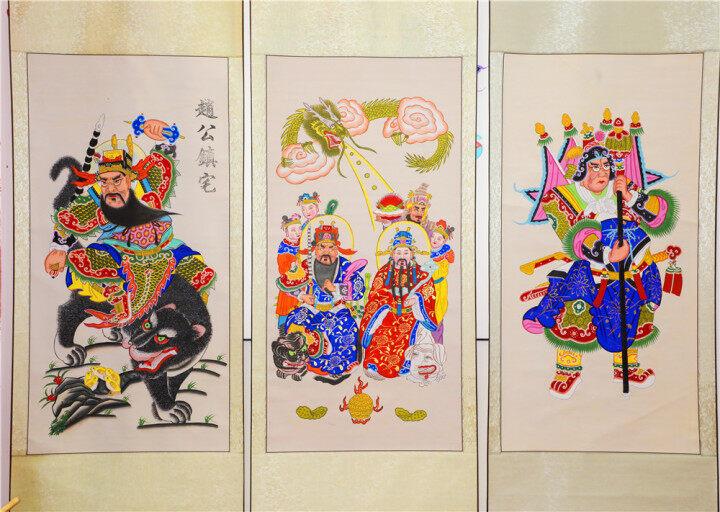 趙公鎮宅